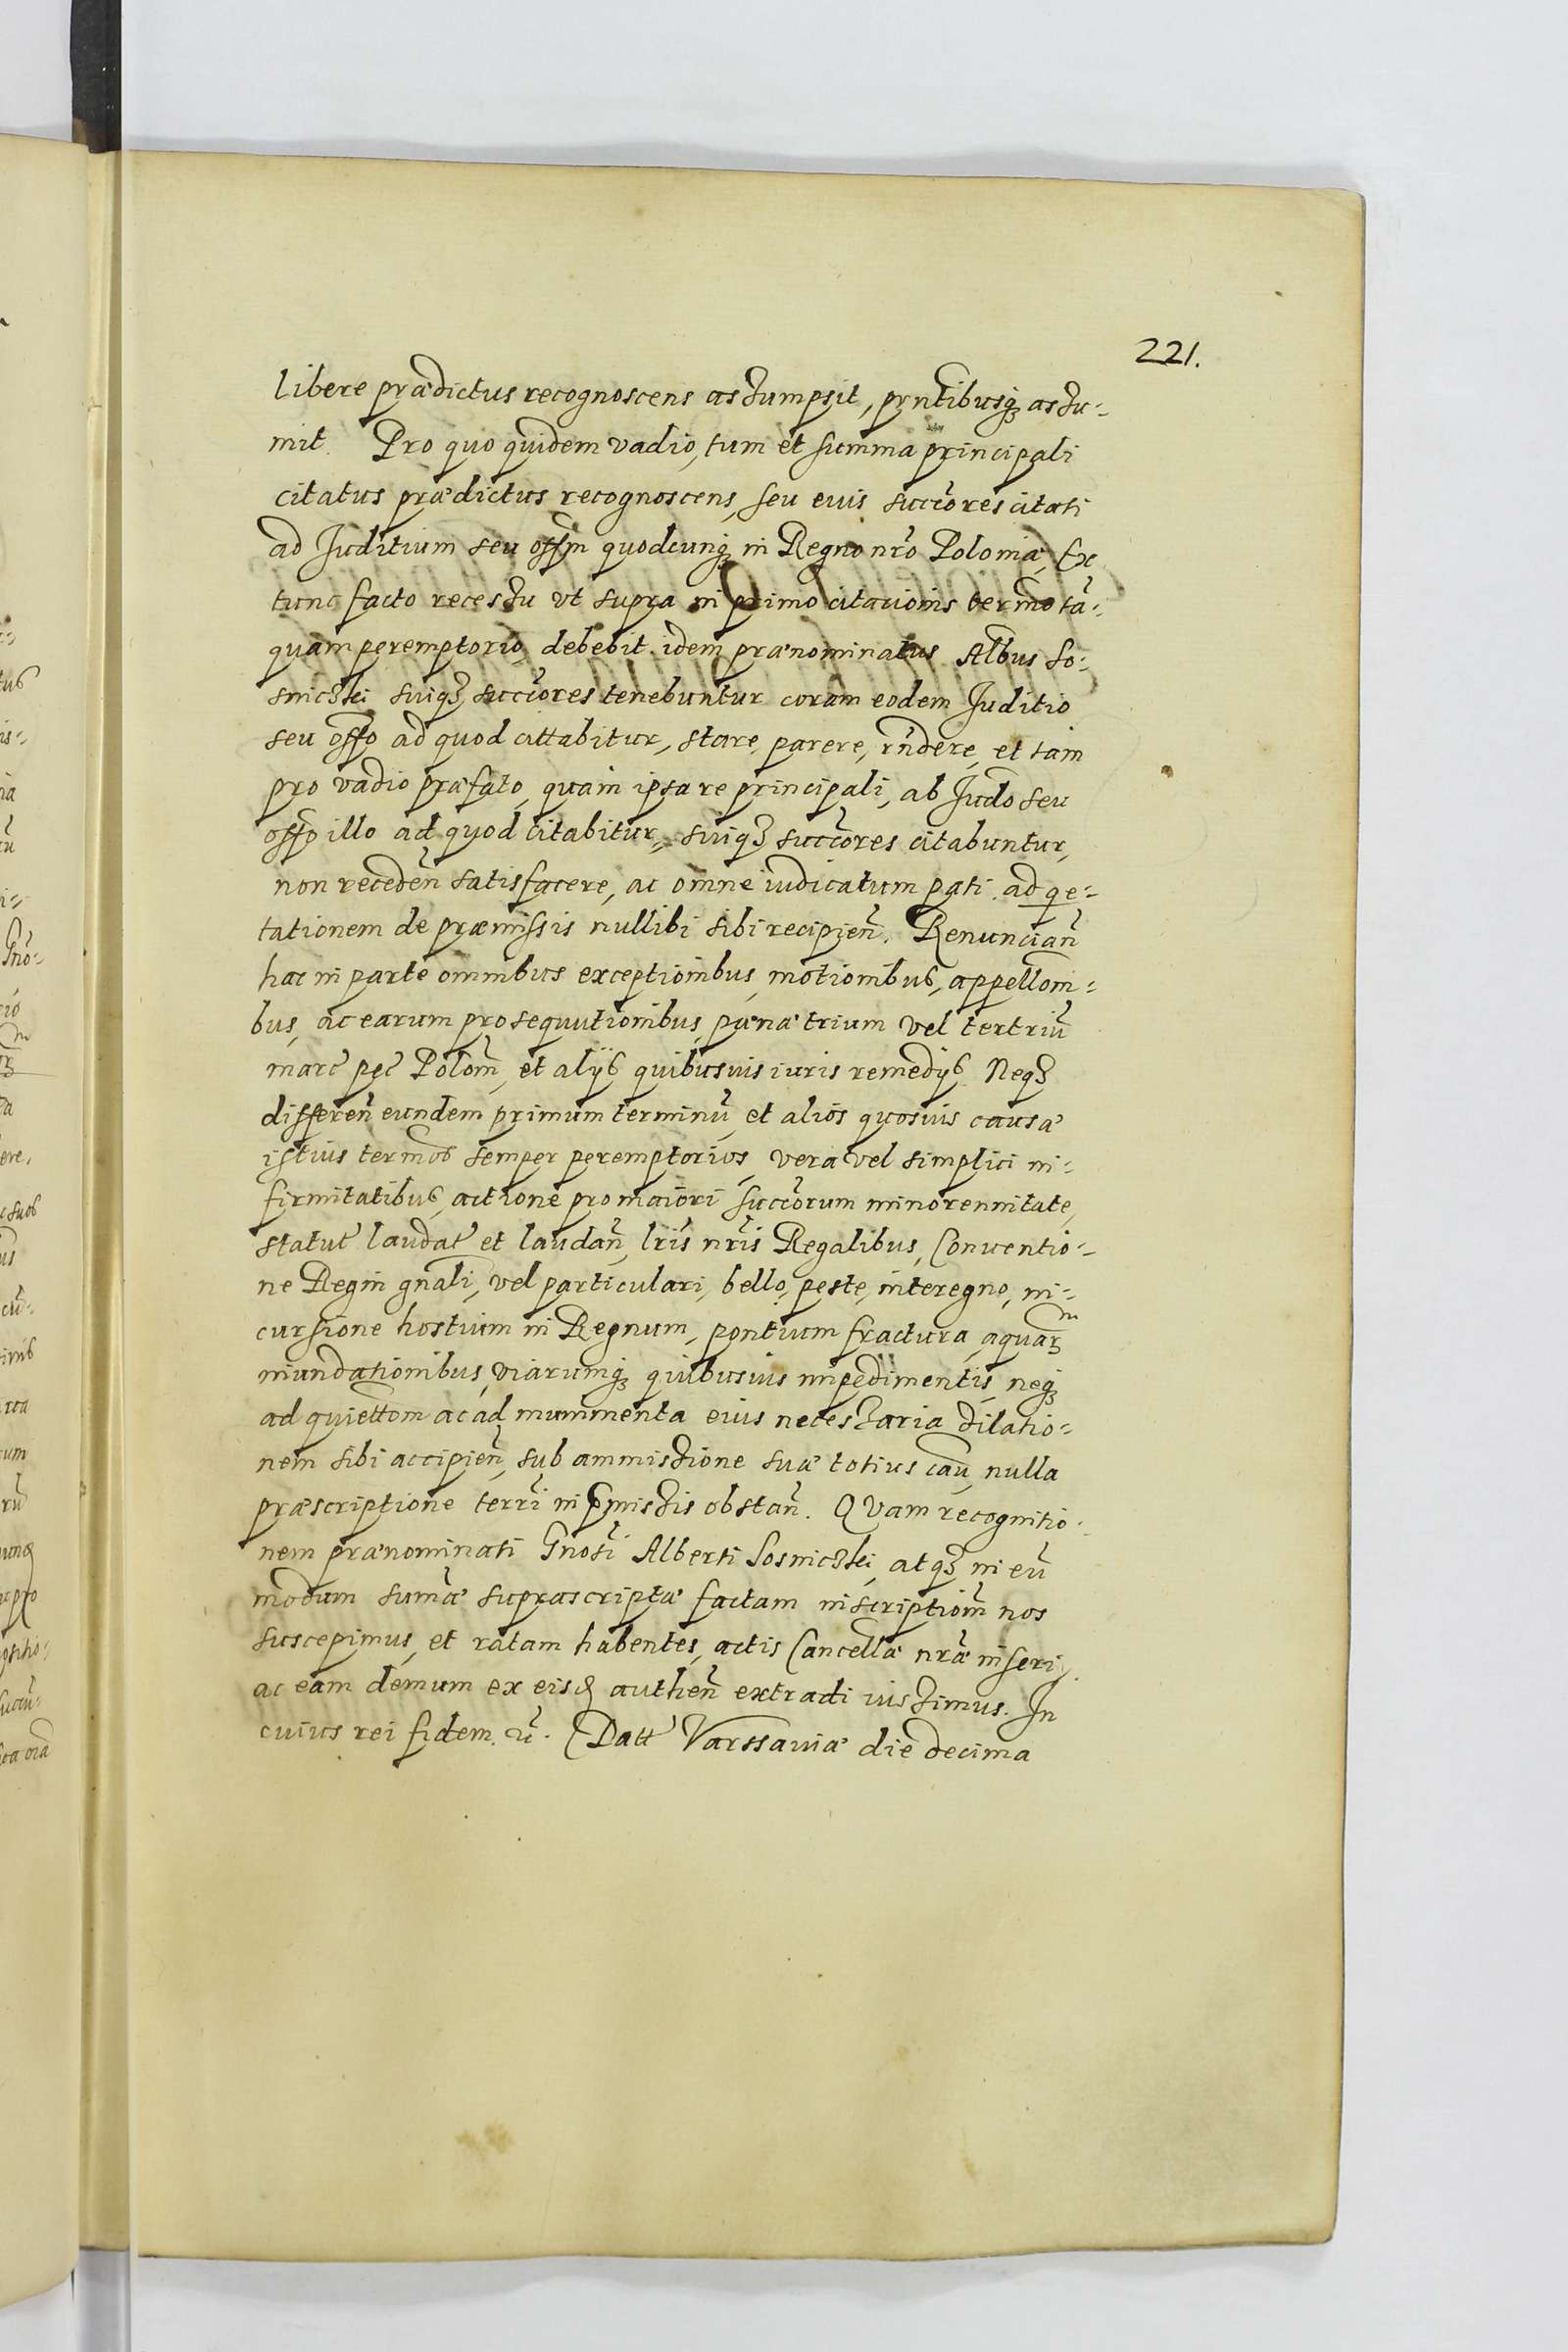 221.
libere prædictus recognoscens assumpsit, prntibusq3 assu-
mit. Pro quo quidem vadio, tum et summa principali
citatus prædictus recognoscens, seu euis succores citati
ad Iuditium seu offm quodcunq3 in Regno nro Poloniæ, Ex
tunc facto recessu vt supra in primo citationis termo tã-
quam peremptorio, debebit idem prænominatus Albus So-
sniczki suiq3 succores tenebuntur coram eodem Iuditio
seu offo ad quod cittabitur, stare, parere, rndere, et tam
pro vadio præfato, quam ipsa re principali, ab Iudo seu
offo illo ad quod citabitur, suiq3 succores citabuntur,
non receden satisfacere, ac omne iudicatum pati, ad qe-
tationem de præmissis nullibi sibi recipien. Renuncian
hac in parte omnibus exceptionibus, motionibus, appellom-
bus, ac earum prosequutionibus, pænæ trium vel tertriũ
marc pec Polom, et alijs quibusuis iuris remedijs. Neq3
differen eundem primum terminũ, et alios quosuis causæ
istius termos semper peremptorios, vera vel simplici in-
firmitatibus, actione pro maiori, succorum minorennitate,
statut laudat et laudan, lris nris Regalibus, Conuentio-
ne Regni gnali, vel particulari, bello, peste, interegno, in-
cursione hostium in Regnum, pontium fractura, aquarm
inundationibus, viarumq3 quibusuis impedimentis, neq3
ad quiettom ac ad munimenta eius necessaria dilatio-
nem sibi accipien, sub ammissione suæ totius cau, nulla
præscriptione terri in pmissis obstan. QVam recognitio-
nem prænominati Gnosi Alberti Sosniczki, atq3 in eũ
modum sumæ suprascriptæ factam inscriptiom nos
suscepimus, et ratam habentes, actis Cancellæ nræ inseri,
ac eam demum ex eisd authen extradi iussimus. In
cuius rei fidem. &. Datt Varssauiæ die decima